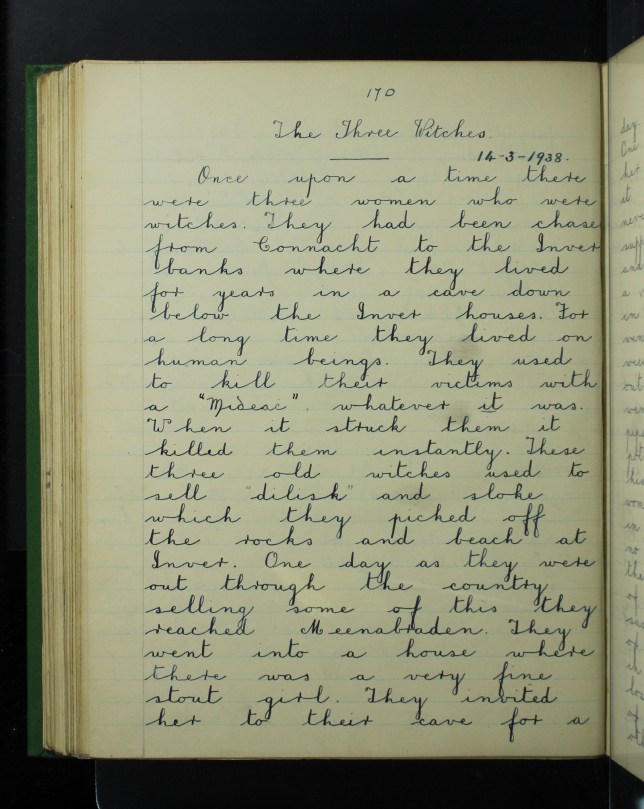 170
The Three Witches.
14-3-1938.
Once upon a time there
were three women who were
witches. They had been chase
from Connacht to the Inver
banks where they lived
for years in a cave down
below the Inver houses. For
a long time they lived on
human beings. They used
to kill their victims with
a "Mideac". whatever it was.
When it struck them it
killed them instantly. These
three old witches used to
sell "dilisk" and sloke
which they picked off
the rocks and beach at
Inver. One day as they were
out through the country
selling some of this they
reached Meenabraden. They
went into a house where
there was a very fine
stout girl. They invited
her to their cave for a